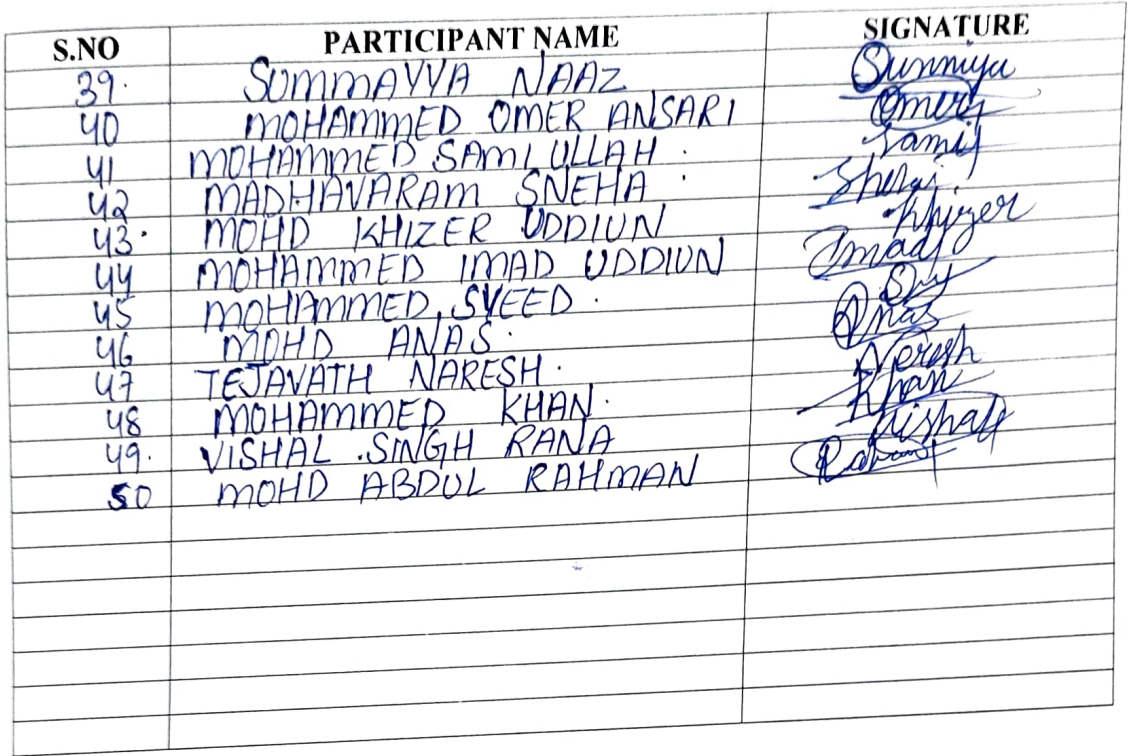 S.NO PARTICIPANT NAME SIGNATURE
39. SUMMAYYA NAAZ
40 MOHAMMED OMER ANSARI Omer
41 MOHAMMED SAMI ULLAH. Sami
42 MADHAVARAM SNEHA.
43. MOHD KHIZER UDDIUN Khizer
44 MOHAMMED IMAD UDDIUN Imad
45 MOHAMMED SYEED.
46 MOHD ANAS. Anas
47 TEJAVATH NARESH. Neresh
48 MOHAMMED KHAN. Khan
49. VISHAL .SINGH RANA Vishal
50 MOHD ABDUL RAHMAN